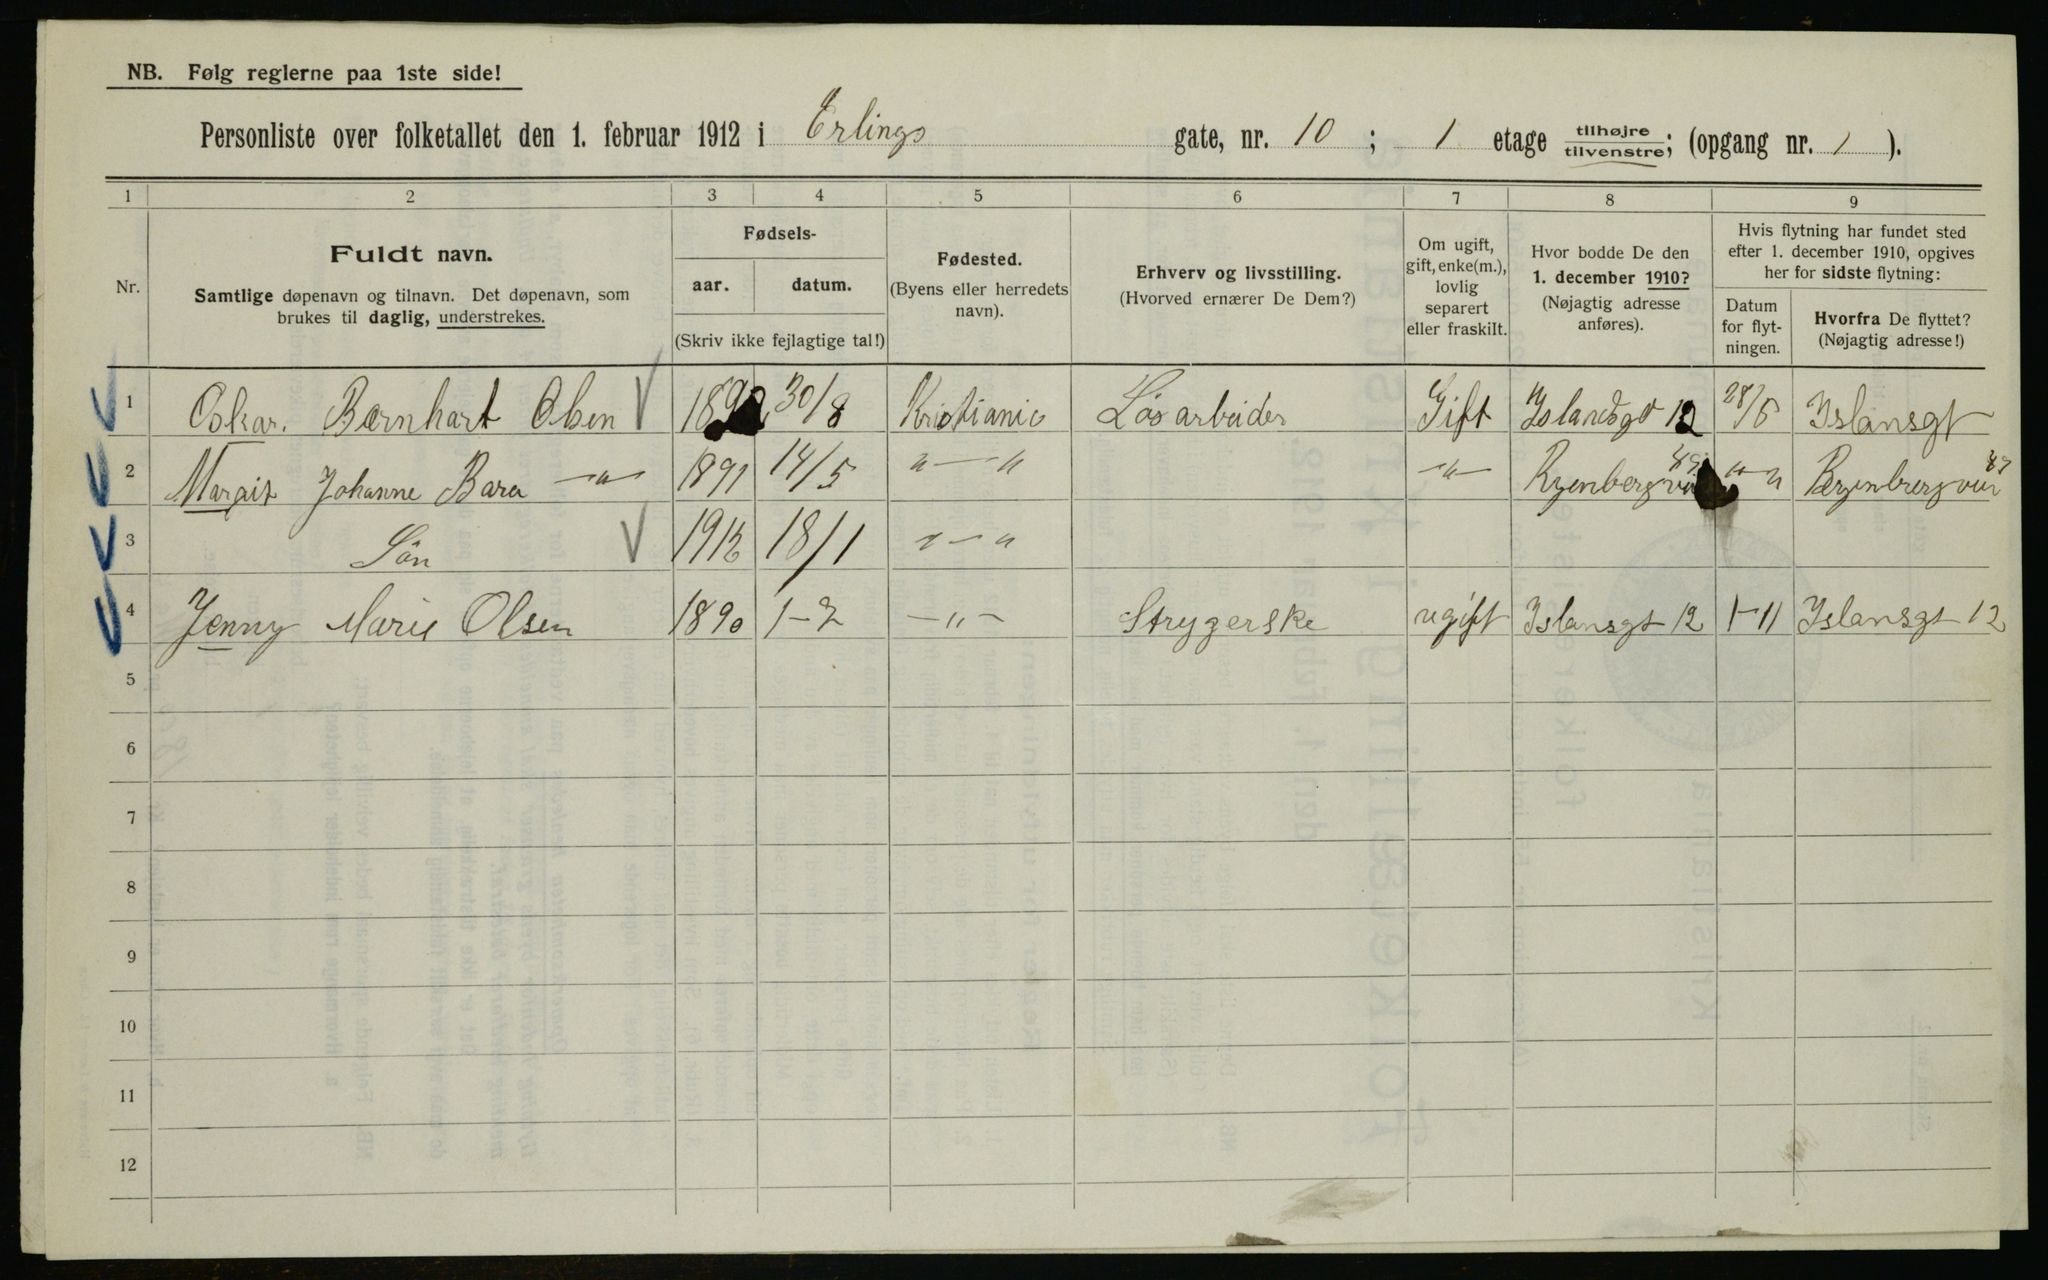 NB. Følg reglerne paa 1ste side!
Personliste over folketallet den 1. februar 1912 i Erlings gate, nr. 10 ; 1 etage tilhøjre tilvenstre; (opgang nr. 1 ).
1 2 3 4 5 6 7 8 9
Nr.
Fuldt navn.
Samtlige døpenavn og tilnavn. Det døpenavn, som
brukes til daglig, understrekes.
Fødsels-
aar. datum.
(Skriv ikke fejlagtige tal!)
Fødested.
(Byens eller herredets
navn).
Erhverv og livsstilling.
(Hvorved ernærer De Dem?)
Om ugift,
gift, enke(m.),
lovlig
separert
eller fraskilt.
Hvor bodde De den
1. december 1910?
(Nøjagtig adresse
anføres).
Hvis flytning har fundet sted
efter 1. december 1910, opgives
her for sidste flytning:
Datum
for flyt-
ningen.
Hvorfra De flyttet?
(Nøjagtig adresse!)
1 Oskar. Bernhart Olsen 30/8 Kristiania Løsarbeider Gift 12 28/5 Islansgt
2 Margit Johanne Bara —"— 1891 14/5 "—" —"— "—"
3 Sön 18/1 "—"
4 Jenny Marie Olsen 1890 1-2 —"— Strygerske ugift Islansgt 12 1-11 Islansgt 12
5
6
7
8
9
10
11
12